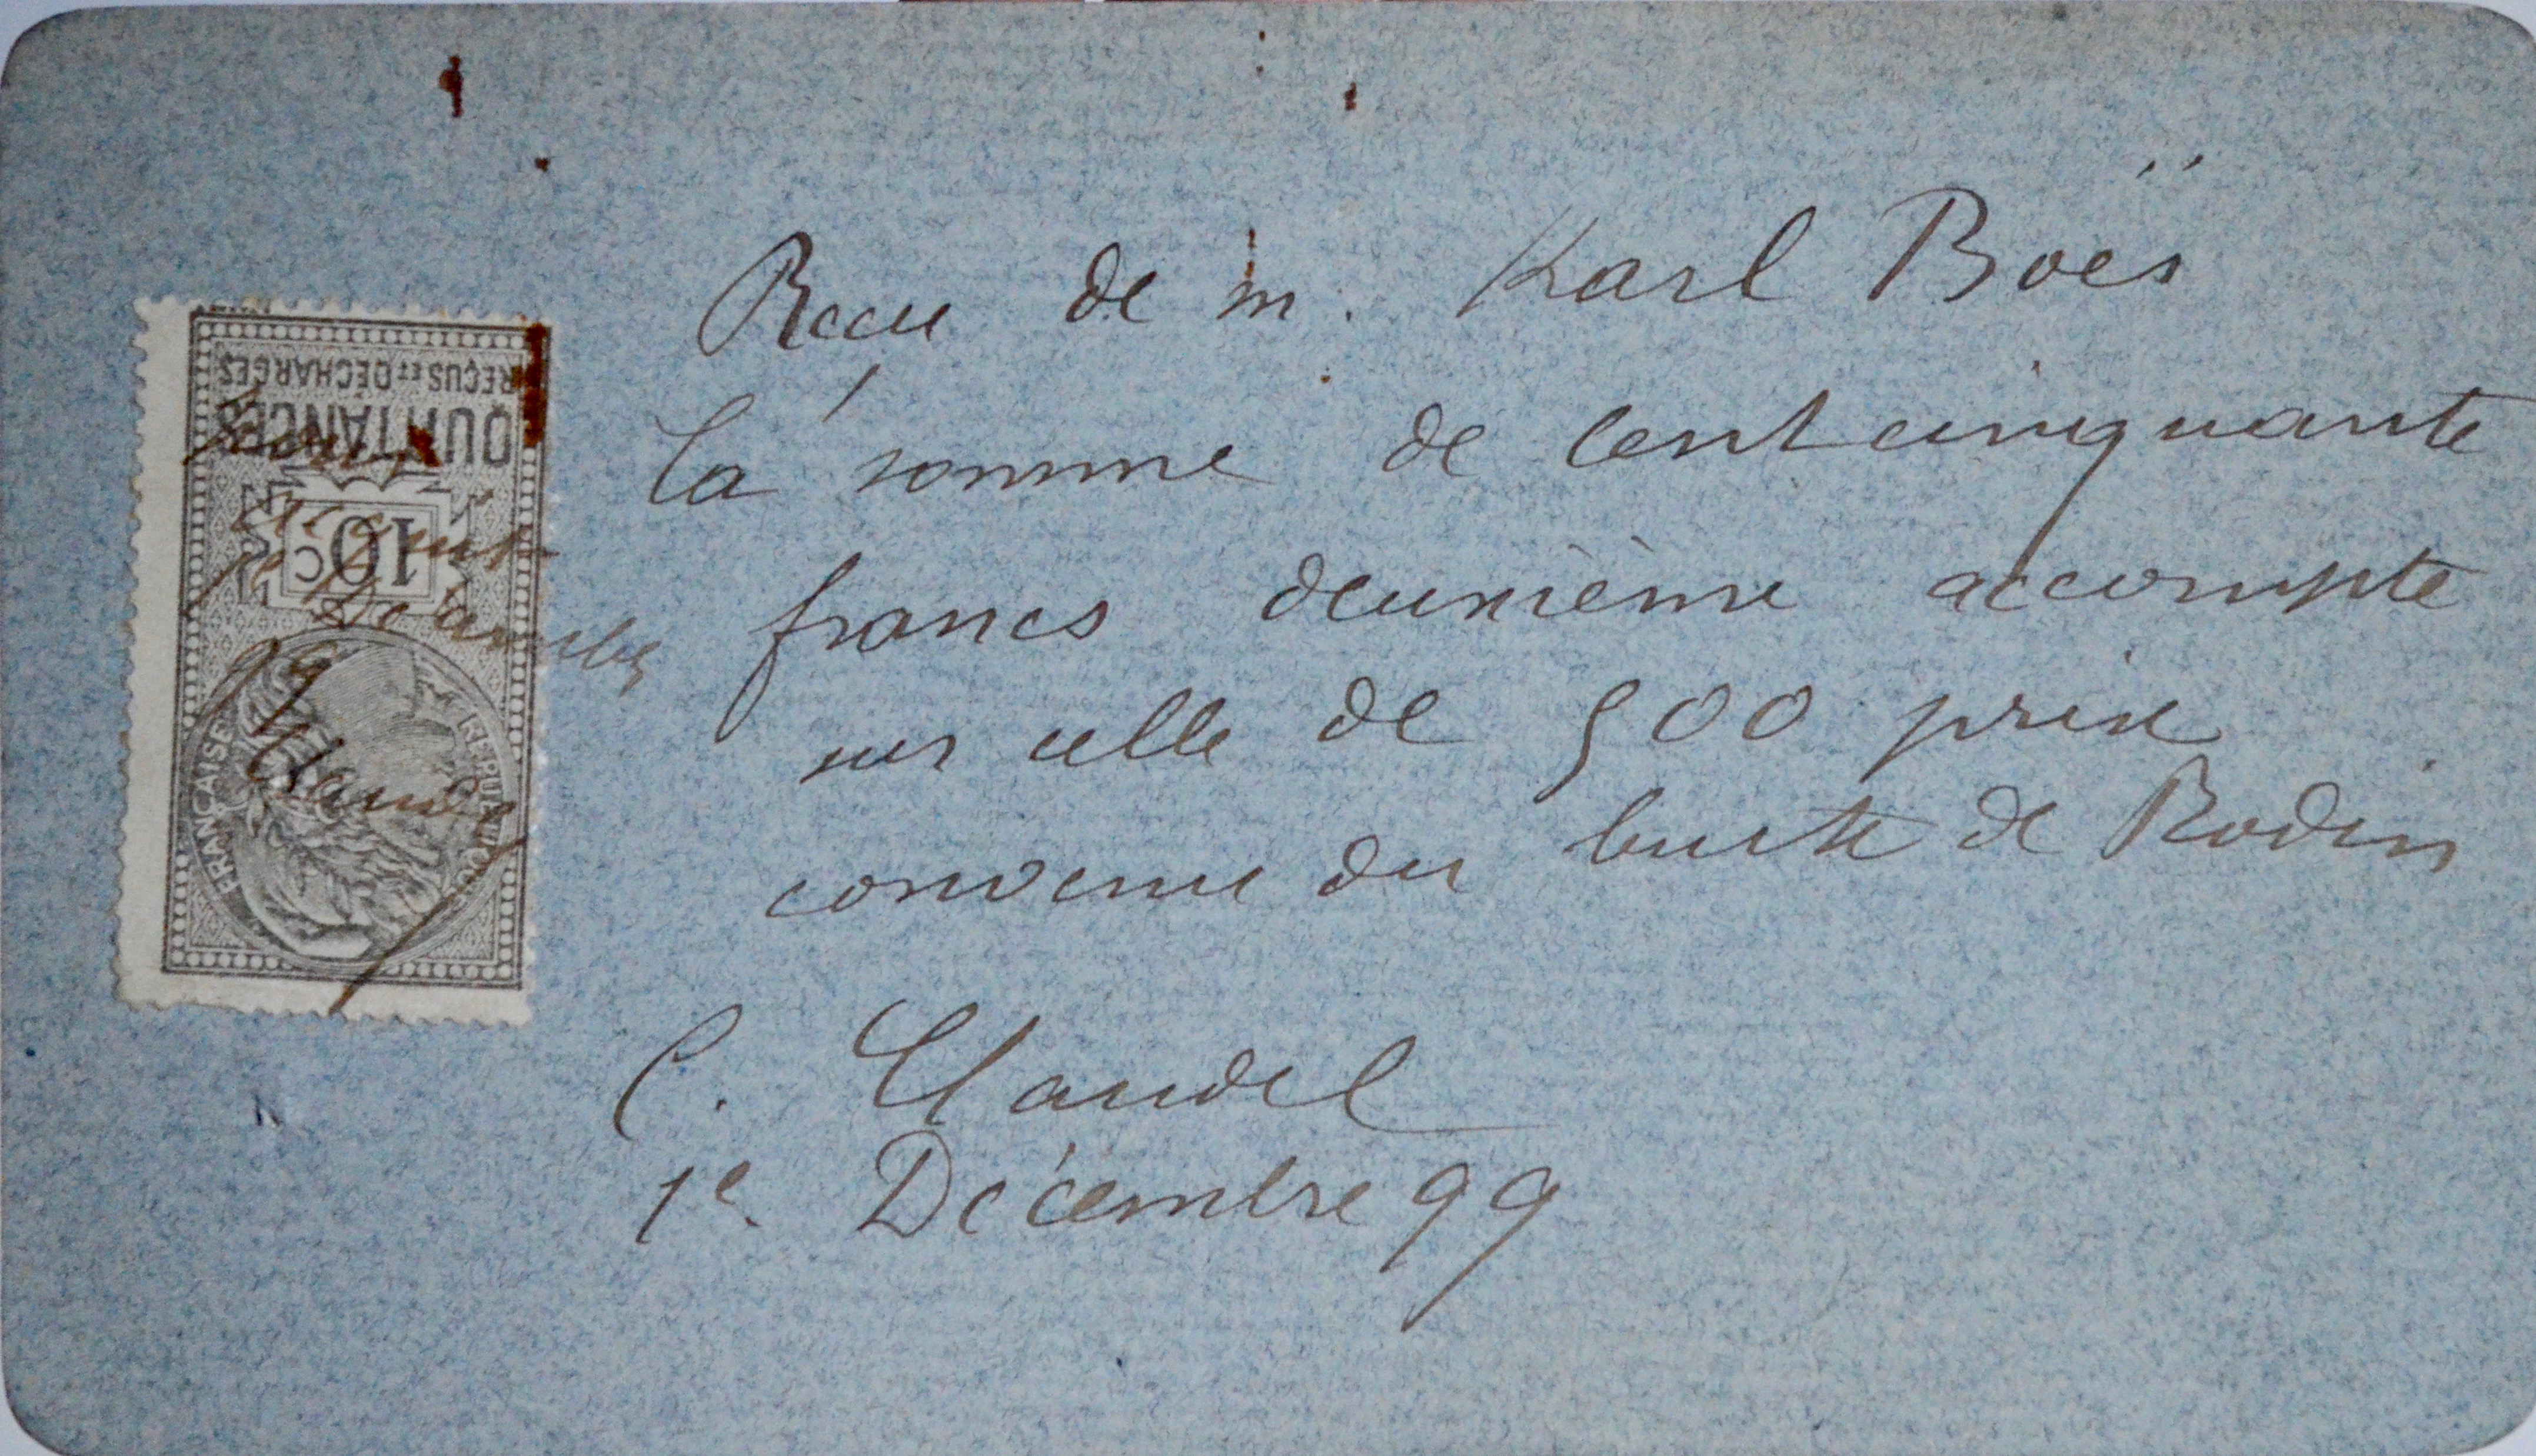 Reçu de m. Karl Boës
la somme de cent cinquante
francs deuxième accompte
sur celle de 500 prix
convenu du buste de Rodin
C. Claudel
1e Décembre 99
RÉPUBLIQUE FRANÇAISE
10c
QUITTANCES
REÇUS ET DÉCHARGES
Paris
1e Décembre
99
Claudel